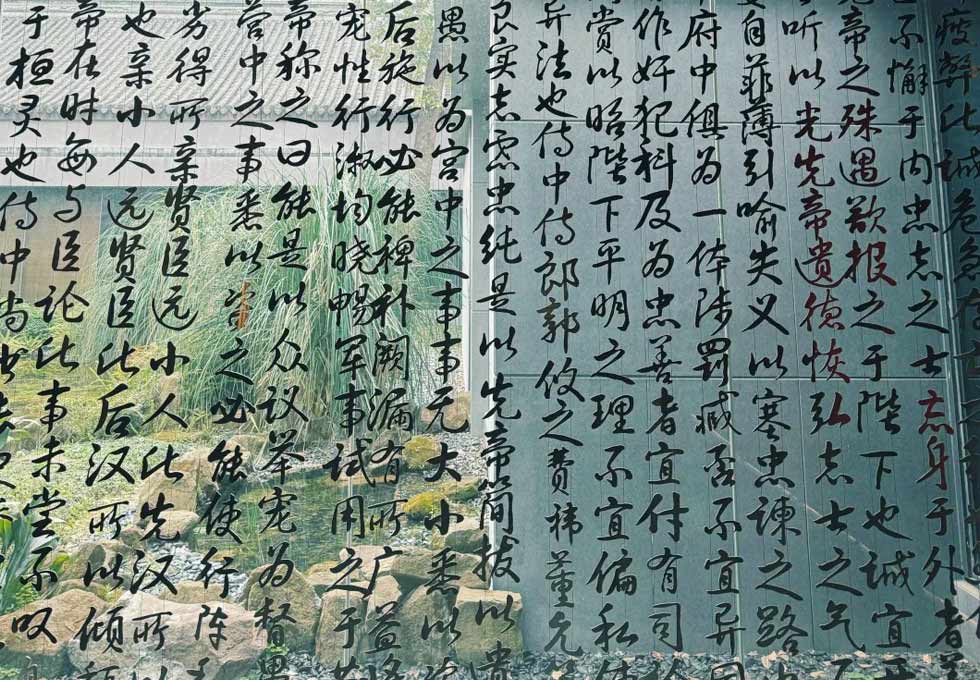 疲弊此诚危急存
不懈于内忠志之士忘身于外者
帝之殊遇欲报之于陛下也诚宜开
听以光先帝遗德恢弘志士之气不
自菲薄引喻失义以塞忠谏之路也
府中俱为一体陟罚臧否不宜异同
作奸犯科及为忠善者宜付有司论
赏以昭陛下平明之理不宜偏私使
异法也侍中侍郎郭攸之费祎董允
良实志虑忠纯是以先帝简拔以遗
愚以为宫中之事事无大小悉以咨
后施行必能裨补阙漏有所广益
宠性行淑均晓畅军事试用之于昔
帝称之曰能是以众议举宠为督愚
营中之事悉以咨之必能使行阵和
劣得所亲贤臣远小人此先汉所以
也亲小人远贤臣此后汉所以倾颓
帝在时每与臣论此事未尝不叹
于桓灵也侍中尚书